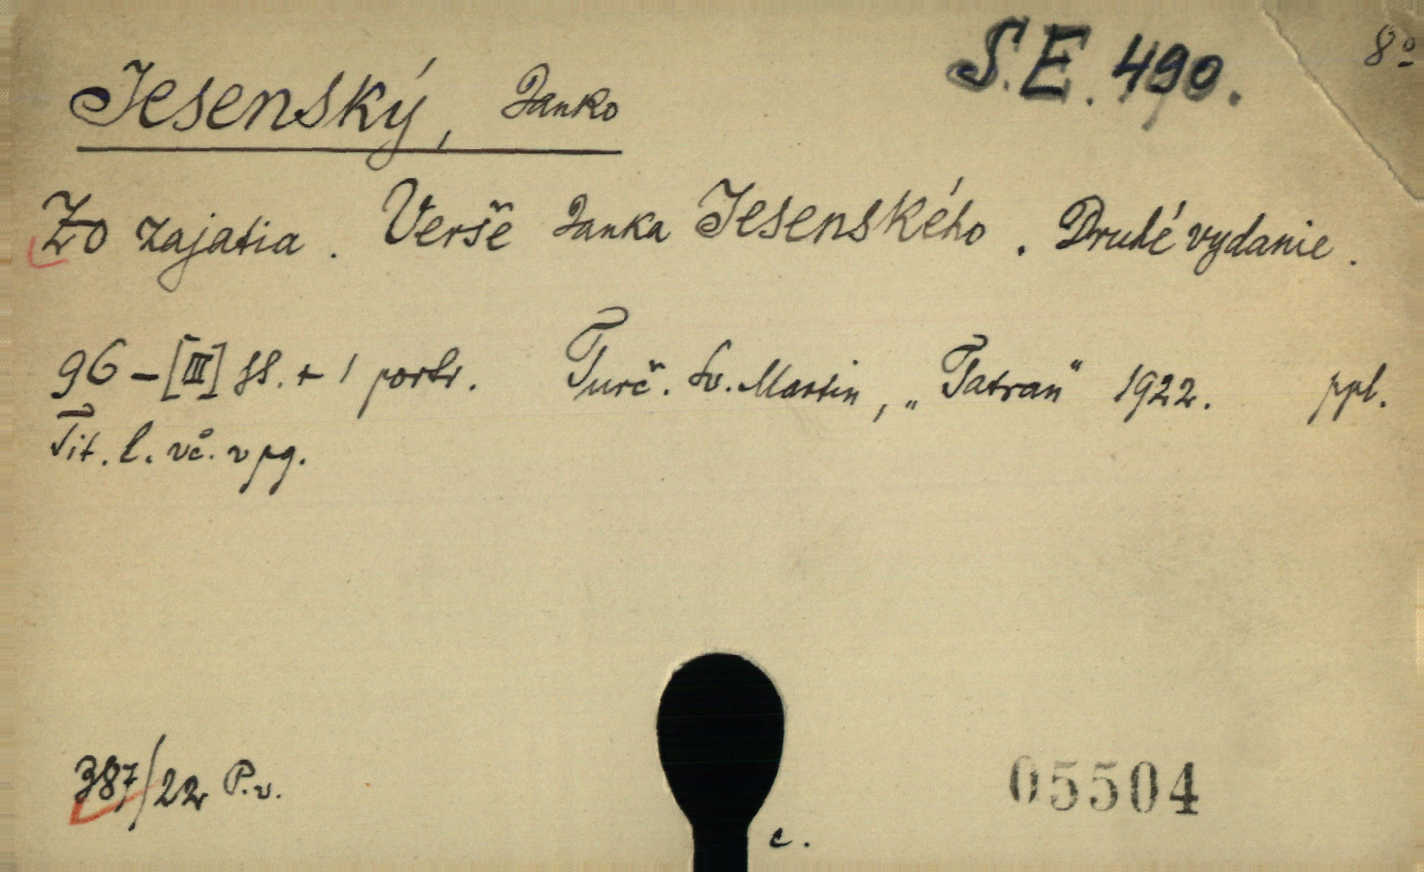 S.E. 490.
8º
Jesenský, Janko
Zo zajatia. Verše Janka Jesenského. Druhé vydanie.
96 - [III] ss. + 1 portr. Turč. Sv. Martin, „Tatran" 1922. ppl.
Tit. l. vč. v pg.
387/22 P.v.
05504
c.